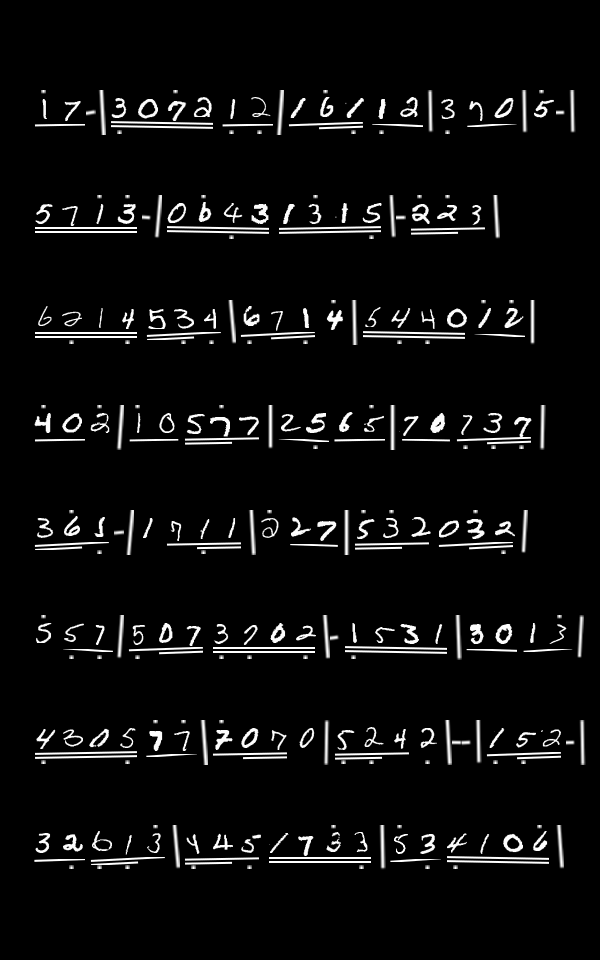 17-|307212|16112|370|5-|
5713-|06431315|-223|
6214534|6714|544012|
402|10577|2565|70737|
361-|1711|227|532032|
557|5073702|-1531|3013|
430577|7070|5242|--|152-|
32613|4451733|534106|